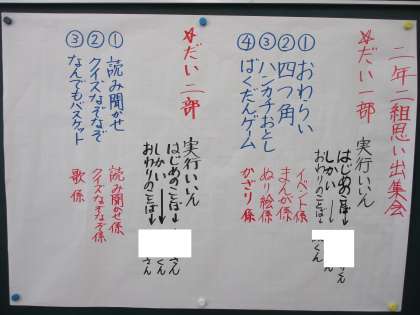 二年二組思い出集会
☆だい一部
実行いいん
はじめのことば→
しかい→
おわりのことば→
さん
くん
①おわらい イベント係
②四つ角 まんが係
③ハンカチおとし ぬり絵係
④ばくだんゲーム かざり係
☆だい二部
実行いいん
はじめのことば→ さん
しかい→ くん
おわりのことば→ さん
①読み聞かせ 読み聞かせ係
②クイズなぞなぞ クイズなぞなぞ係
③なんでもバスケット 歌係